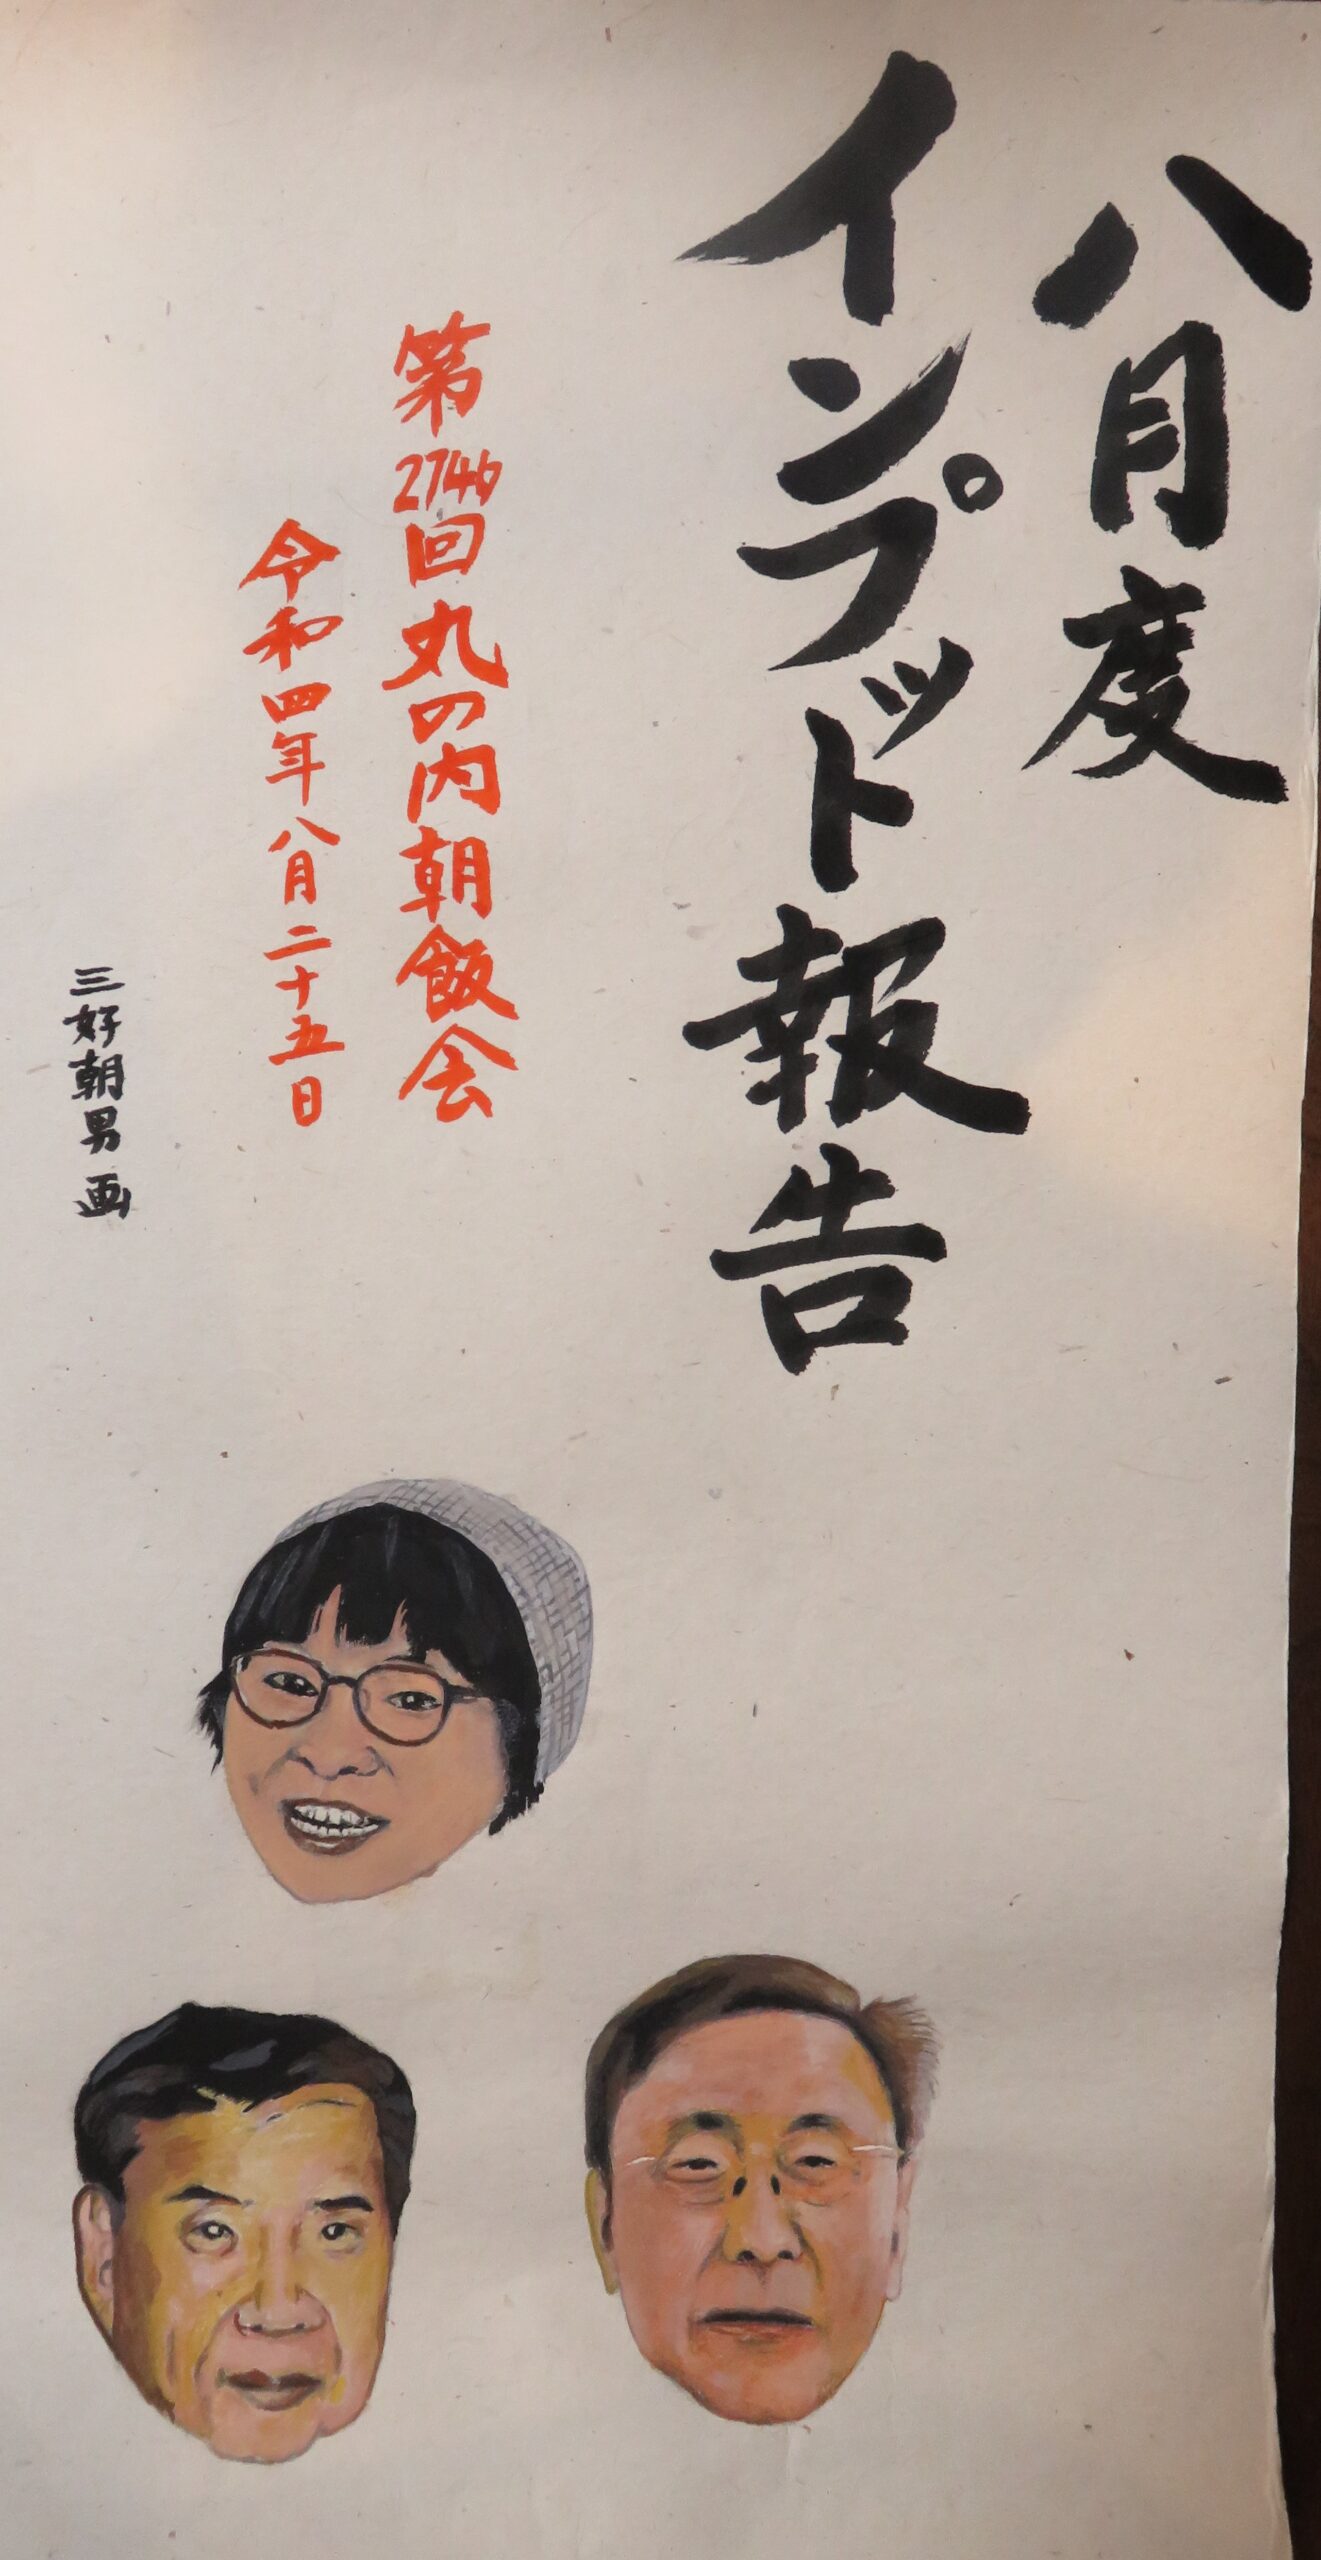 八月度
インプット報告
第2746回丸の内朝飯会
令和四年八月二十五日
三好朝男画